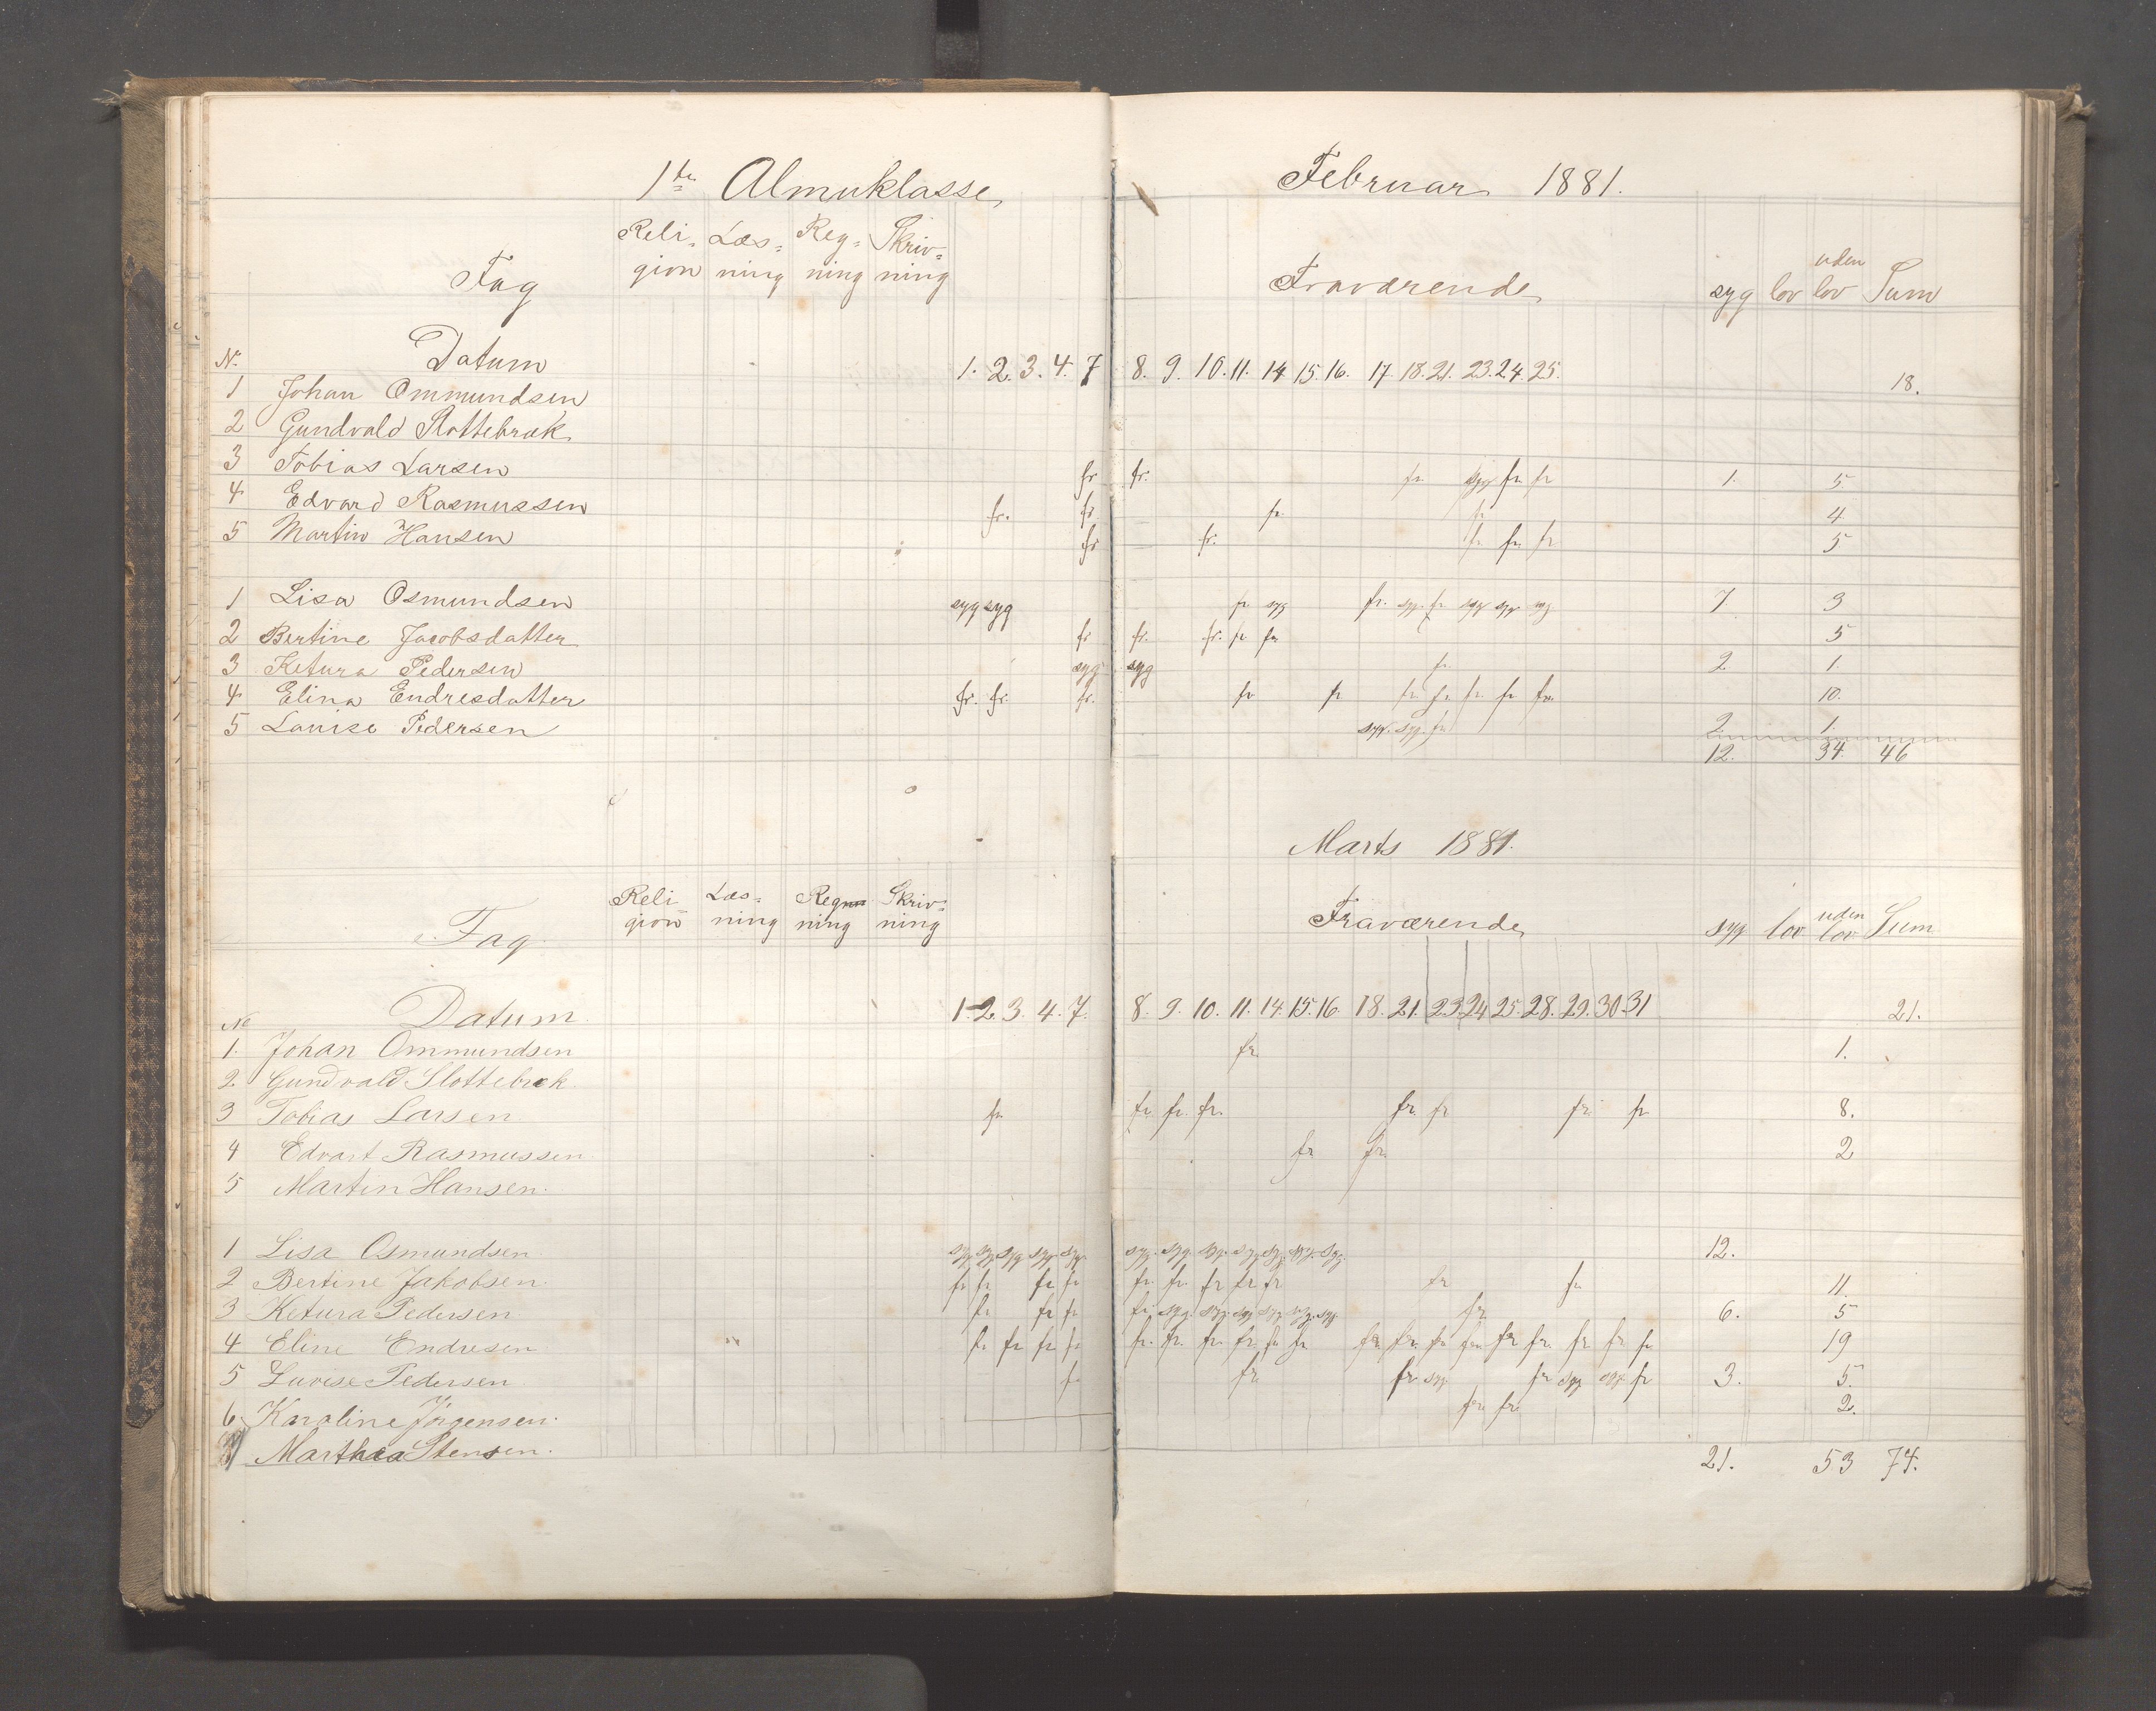 1ste Almuklasse Februar 1881.
Fag Reli- Læs- Reg- Skriv-
gion ning ning ning Fraværende syg lov uden lov Sum
No. Datum 1. 2. 3. 4. 7 8. 9. 10. 11. 14 15. 16. 17. 18. 21. 23. 24. 25. 18.
1 Johan Ommundsen
2 Gundvald Slottebræk
3 Tobias Larsen fr fr. fr syg fr fr 1. 5.
4 Edvard Rasmussen fr. fr fr fr 4.
5 Martin Hansen fr fr. fr fr fr 5
1 Lisa Osmundsen syg syg fr syg fr. syg. fr syg syg syg 7. 3
2 Bertine Jacobsdatter fr fr. fr. fr fr 5
3 Ketura Pedersen syg syg fr. 2 1.
4 Elina Endresdatter fr. fr. fr. fr fr fr fr fr. fr fr. 10.
5 Louise Pedersen syg. syg. fr 2. 1.
12. 34. 46
Marts 1881.
Fag Reli- Læs- Reg Skriv-
gion ning ning ning Fraværende syg lov uden lov Sum
No Datum 1. 2. 3. 4. 7. 8. 9. 10. 11. 14. 15. 16. 18. 21. 23. 24 25. 28. 29. 30 31 21.
1. Johan Ommundsen fr. 1.
2. Gundvald Slottebrek
3 Tobias Larsen fr. fr. fr. fr. fr. fr fr. fr 8.
4 Edvart Rasmussen fr fr. 2
5 Martin Hansen.
1 Lisa Osmundsen syg syg syg syg syg. syg. syg. syg. syg syg. syg. syg. 12.
2 Bertine Jakobsen. fr fr fr fr fr. fr. fr fr fr fr fr 11.
3 Ketura Pedersen fr fr fr fr. syg. syg. syg syg syg. syg. fr. 6. 5
4 Eline Endresen fr. fr fr fr fr. fr. fr. fr. fr fr fr. fr. fr fr fr fr. fr fr fr 19
5 Luvise Pedersen fr fr. fr syg fr syg syg fr 3. 5.
6. Karoline Jörgensen. fr fr. 2.
7 Marthea Stensen.
21. 53 74.